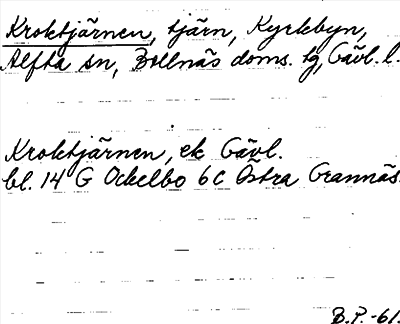 Kroktjärnen, tjärn, Kyrkbyn,
Alfta sn, Bollnäs doms. tg, Gävl. l.
Kroktjärnen, ek Gävl.
bl. 14 G Ockelbo 6c Östra Grannäs.
B.P.-61.